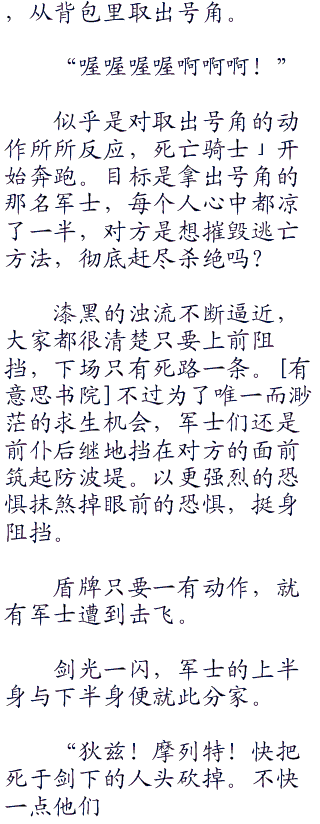 ，从背包里取出号角。
“喔喔喔喔啊啊啊！”
似乎是对取出号角的动
作所所反应，死亡骑士」开
始奔跑。目标是拿出号角的
那名军士，每个人心中都凉
了一半，对方是想摧毁逃亡
方法，彻底赶尽杀绝吗？
漆黑的浊流不断逼近，
大家都很清楚只要上前阻
挡，下场只有死路一条。[有
意思书院]不过为了唯一而渺
茫的求生机会，军士们还是
前仆后继地挡在对方的面前
筑起防波堤。以更强烈的恐
惧抹煞掉眼前的恐惧，挺身
阻挡。
盾牌只要一有动作，就
有军士遭到击飞。
剑光一闪，军士的上半
身与下半身便就此分家。
“狄兹！摩列特！快把
死于剑下的人头砍掉。不快
一点他们